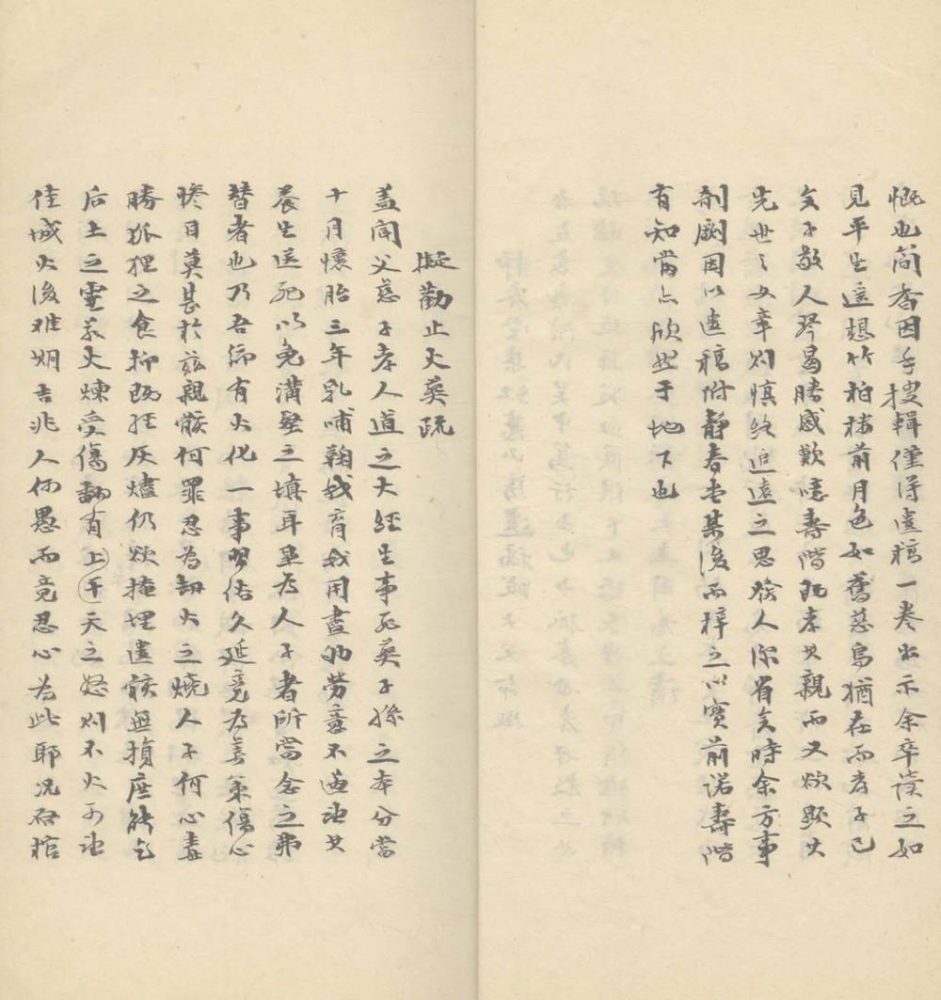 慨也簡香因手搜輯僅得遺稿一卷出示余卒讀之如
見平生遥想竹柏樓前月色如舊慈烏猶在而孝子已
矣子敬人琴曷勝感歎嘻壽階既孝其親而又欲顯其
先世之文章則慎終追遠之思發人深省矣時余方事
剞劂因以遺稿附靜春堂集後而梓之以實前諾壽階
有知當亦欣然于地下也
擬勸止火葬疏
蓋聞父慈子孝人道之大經生事死葬子孫之本分當
十月懷胎三年乳哺鞠我育我用盡劬勞意不過沾其
養生送死以免溝壑之填耳且為人子者所當念之弗
替者也乃吾俗有火化一事習俗久延竟為善策傷心
慘目莫甚於兹親骸何罪忍為劫火之燒人子何心毒
勝狐狸之食抑既經灰燼仍欲掩埋遺骸無損庶能乞
后土之靈若火煉受傷翻有上干天之怒則不火可知
佳城火後難期吉兆人何愚而竟忍心為此耶况啓棺